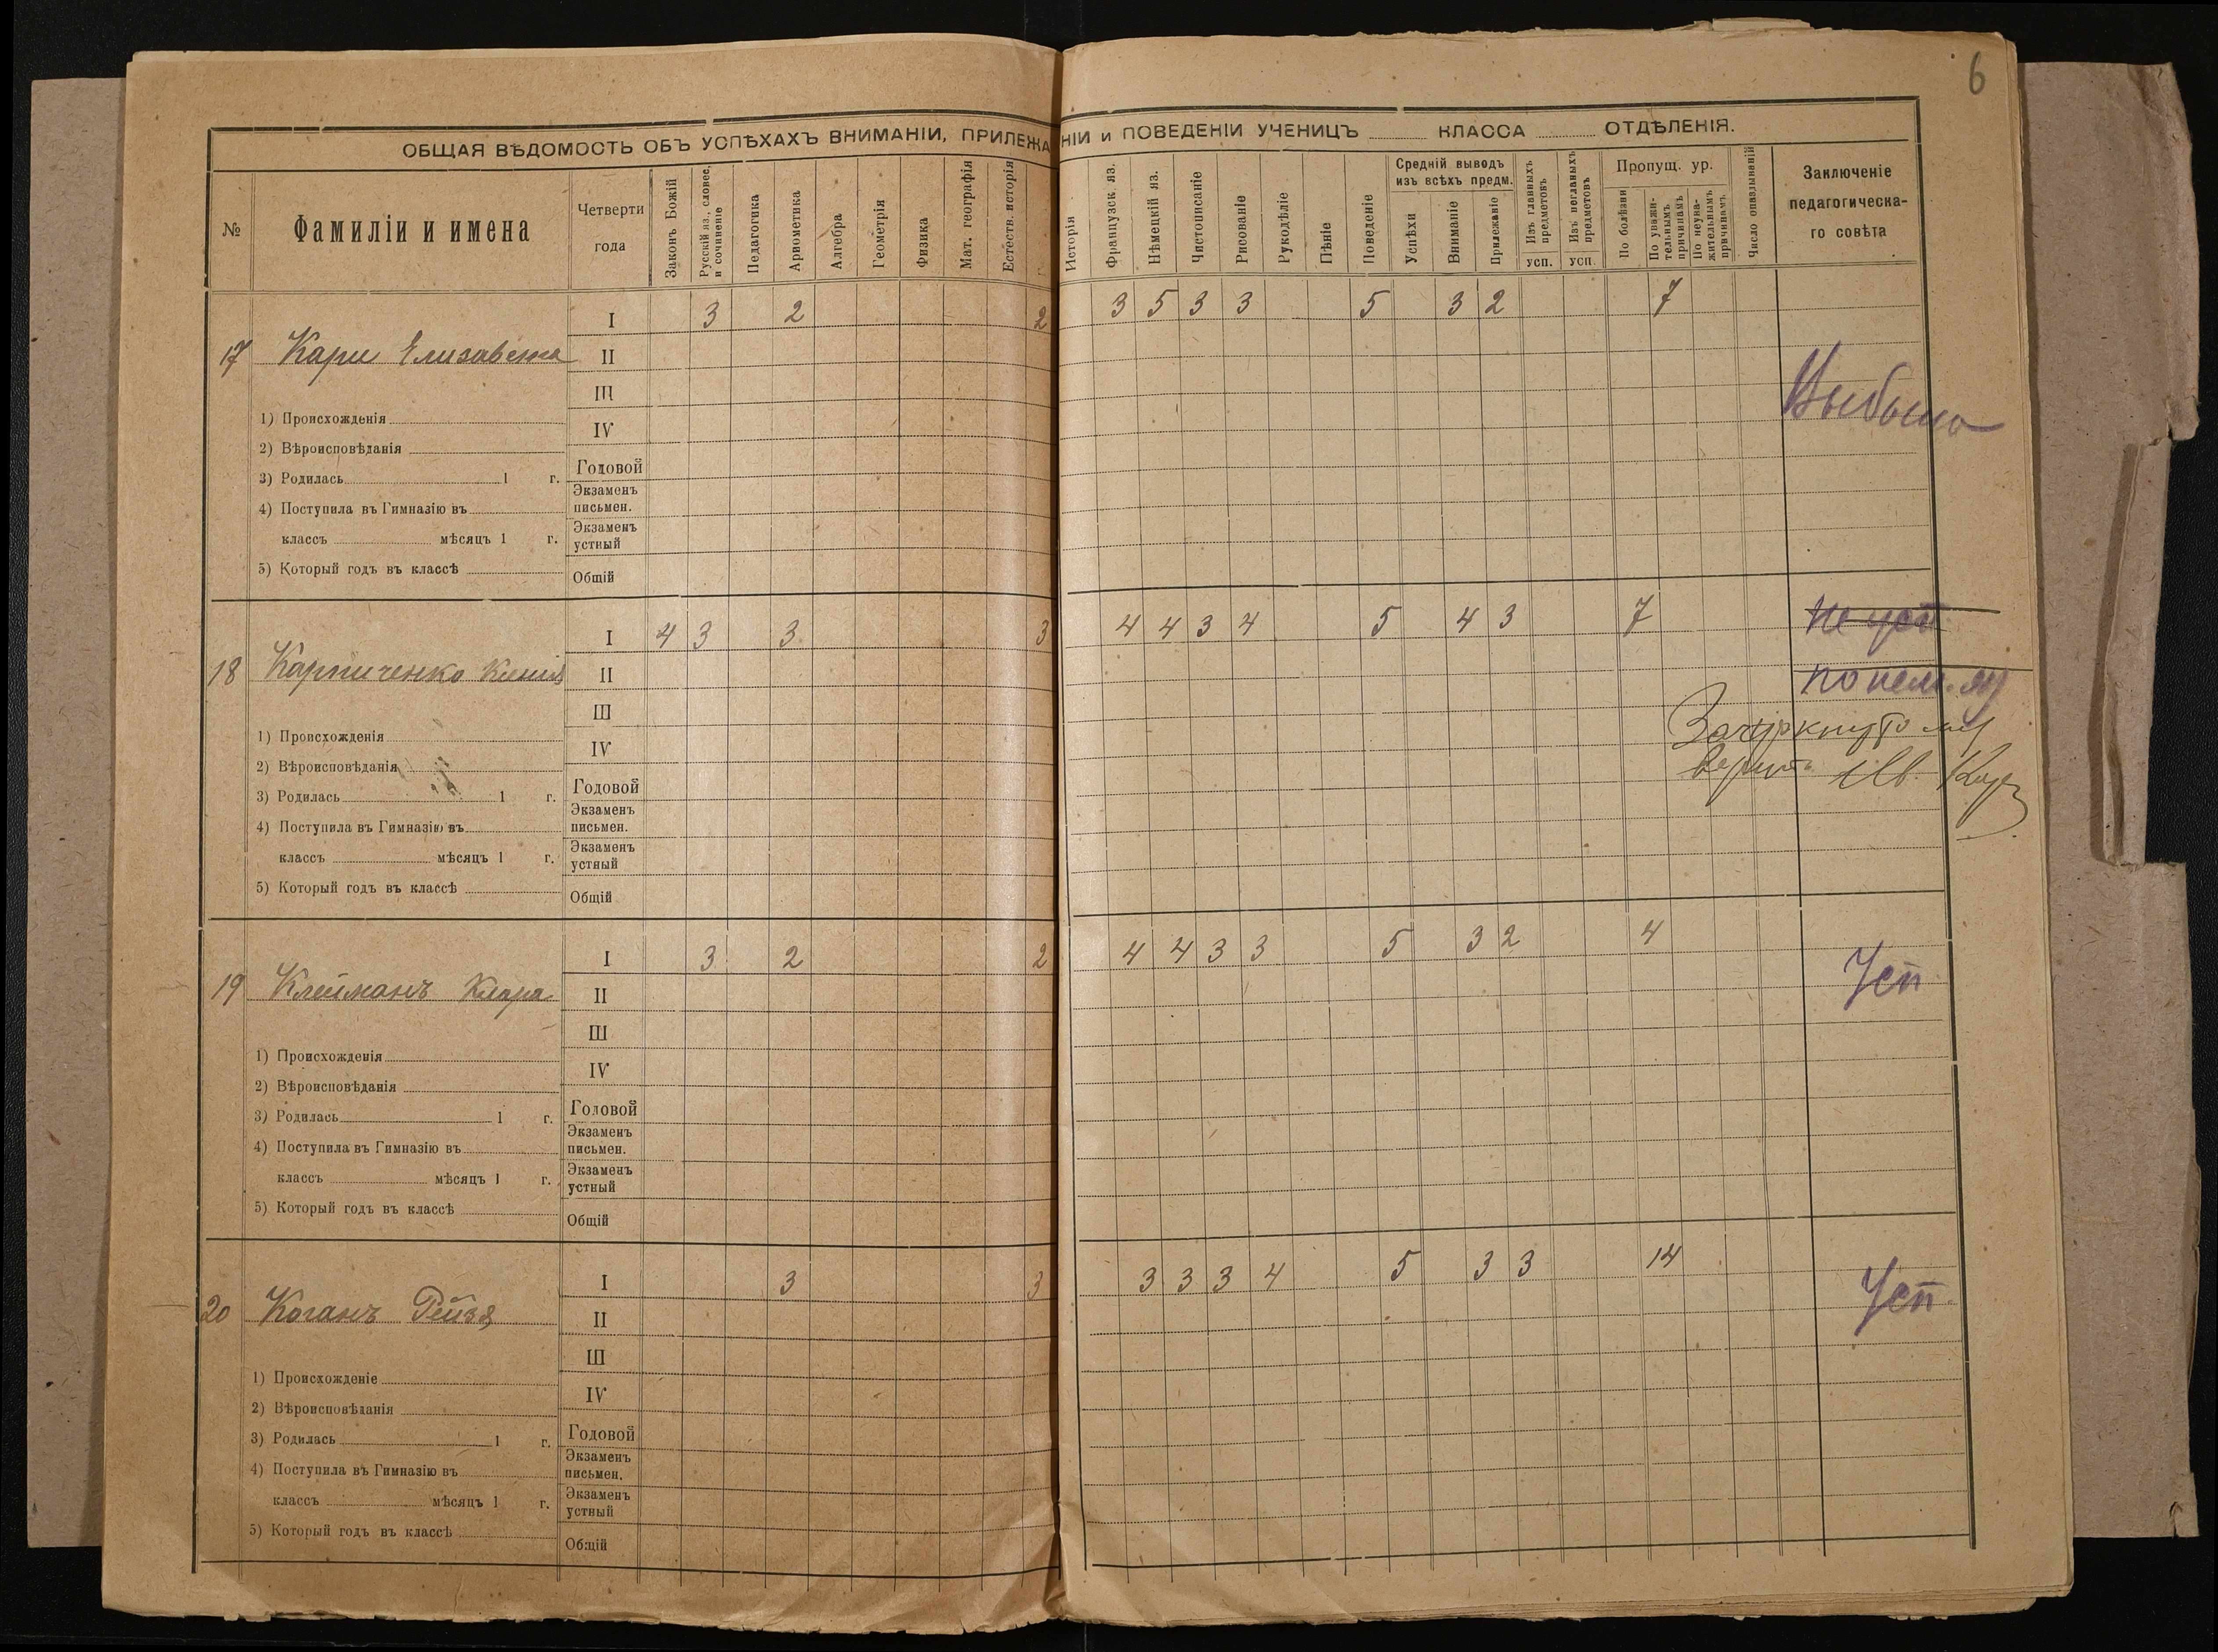 6
ОБЩАЯ ВѢДОМОСТЬ ОБЪ УСПѢХАХЪ ВНИМАНІИ, ПРИЛЕЖА НІИ и ПОВЕДЕНІИ УЧЕНИЦЪ КЛАССА ОТДѢЛЕНІЯ.
№
Фамиліи и имена
Четверти года
Законъ Божій
Русскій яз., словес. и сочиненіе
Педагогика
Ариѳметика
Алгебра
Геометрія
Физика
Мат. географія
Естеств. исторія
Исторія
Французск. яз.
Нѣмецкій яз.
Чистописаніе
Рисованіе
Рукодѣліе
Пѣніе
Поведеніе
Средній выводъ изъ всѣхъ предм.
Успѣхи
Вниманіе
Прилежаніе
Изъ главныхъ предметовъ
усп.
Изъ неглавныхъ предметовъ
усп.
Пропущ. ур.
По болѣзни
По уважи-тельнымъ причинамъ
По неува-жительнымъ причинамъ
Число опаздываній
Заключеніе педагогическа-го совѣта
I 3 2 2 3 5 3 3 5 3 2 7
17 Кари Елизавета II
III
Выбыла
1) Происхожденія IV
2) Вѣроисповѣданія
Годовой
3) Родилась 1 г.
Экзаменъ письмен.
4) Поступила въ Гимназію въ
Экзаменъ устный
классъ мѣсяцъ 1 г.
5) Который годъ въ классѣ
Общій
I 4 3 3 3 4 4 3 4 5 4 3 7 Не усп
18 Карпиченко Ксенія II
по нем. яз
III
Зачеркнутому
1) Происхожденія IV
верить
2) Вѣроисповѣданія
Годовой
3) Родилась 1 г.
Экзаменъ письмен.
4) Поступила въ Гимназію въ
Экзаменъ устный
классъ мѣсяцъ 1 г.
5) Который годъ въ классѣ
Общій
I 3 2 2 4 4 3 3 5 3 2 4
Усп
19 Клейманъ Клара II
III
1) Происхожденія IV
2) Вѣроисповѣданія
Годовой
3) Родилась 1 г.
Экзаменъ письмен.
4) Поступила въ Гимназію въ
Экзаменъ устный
классъ мѣсяцъ 1 г.
5) Который годъ въ классѣ
Общій
I 3 3 3 3 3 4 5 3 3 14
Усп.
20 Коганъ Рейзя II
III
1) Происхожденіе IV
2) Вѣроисповѣданія
Годовой
3) Родилась 1 г.
Экзаменъ письмен.
4) Поступила въ Гимназію въ
Экзаменъ устный
классъ мѣсяцъ 1 г.
5) Который годъ въ классѣ
Общій